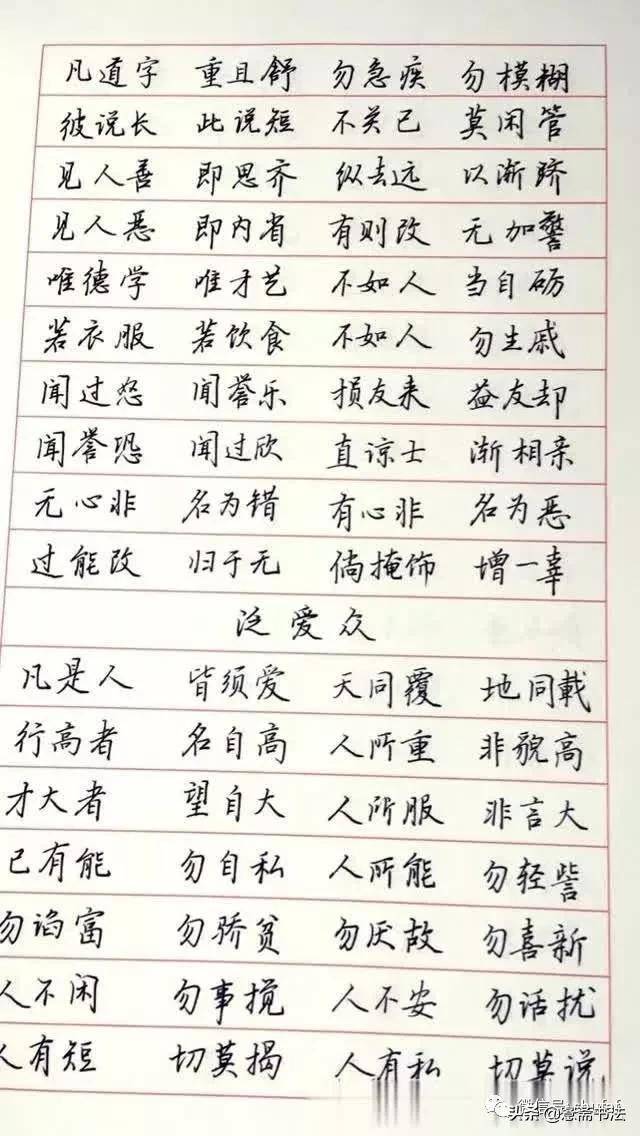 凡道字 重且舒 勿急疾 勿模糊
彼说长 此说短 不关己 莫闲管
见人善 即思齐 纵去远 以渐跻
见人恶 即内省 有则改 无加警
唯德学 唯才艺 不如人 当自砺
若衣服 若饮食 不如人 勿生戚
闻过怒 闻誉乐 损友来 益友却
闻誉恐 闻过欣 直谅士 渐相亲
无心非 名为错 有心非 名为恶
过能改 归于无 倘掩饰 增一辜
泛爱众
凡是人 皆须爱 天同覆 地同载
行高者 名自高 人所重 非貌高
才大者 望自大 人所服 非言大
己有能 勿自私 人所能 勿轻訾
勿谄富 勿骄贫 勿厌故 勿喜新
人不闲 勿事搅 人不安 勿话扰
人有短 切莫揭 人有私 切莫说
头条 @慧斋书法